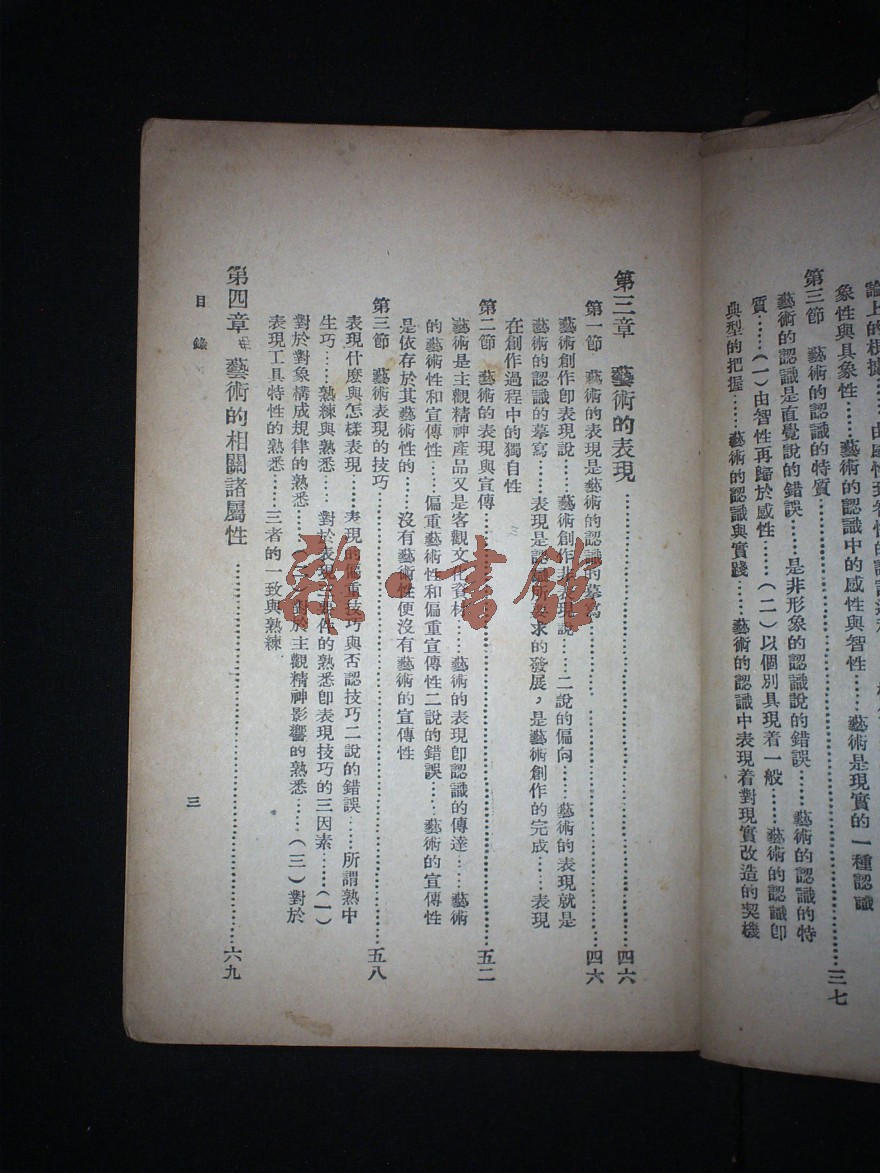 象性與具象性……藝術的認識中的感性與智性……藝術是現實的一種認識
第三節　藝術的認識的特質……三七
藝術的認識是直覺說的錯誤……是非形象的認識說的錯誤……藝術的認識的特
質……(一)由智性再歸於感性……(二)以個別具現着一般……藝術的認識卽
典型的把握……藝術的認識與實踐……藝術的認識中表現着對現實改造的契機
第三章　藝術的表現……四六
第一節　藝術的表現是藝術的認識的摹寫……四六
藝術創作卽表現說……藝術創作非表現說……二說的偏向……藝術的表現就是
藝術的認識的摹寫……表現是認識所要求的發展，是藝術創作的完成……表現
在創作過程中的獨自性
第二節　藝術的表現與宣傳……五二
藝術是主觀精神產品又是客觀文化資材……藝術的表現卽認識的傳達……藝術
的藝術性和宣傳性……偏重藝術性和偏重宣傳性二說的錯誤……藝術的宣傳性
是依存於其藝術性的……沒有藝術性便沒有藝術的宣傳性
第三節　藝術表現的技巧……五八
表現什麽與怎樣表現……表現的偏重技巧與否認技巧二說的錯誤……所謂熟中
生巧……熟練與熟悉……對於表現的條件的熟悉卽表現技巧的三因素……(一)
對於對象構成規律的熟悉……(二)對於主觀精神影響的熟悉……(三)對於
表現工具特性的熟悉……三者的一致與熟練
第四章　藝術的相關諸屬性……六九
目錄
三
雜·書館